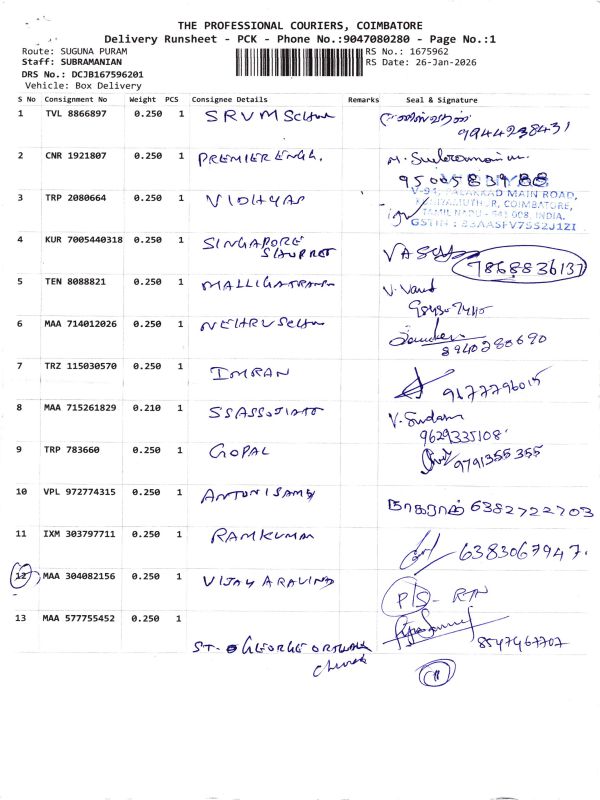 THE PROFESSIONAL COURIERS, COIMBATORE
Delivery Runsheet - PCK - Phone No.:9047080280 - Page No.:1
Route: SUGUNA PURAM
RS No.: 1675962
Staff: SUBRAMANIAN
RS Date: 26-Jan-2026
DRS No.: DCJB167596201
Vehicle: Box Delivery
S No Consignment No Weight PCS Consignee Details Remarks Seal & Signature
1 TVL 8866897 0.250 1 SRVM School
9944238431
2 CNR 1921807 0.250 1 PREMIER ENGG. M. Subramanian
9500583988
3 TRP 2080664 0.250 1 VIDHYAS
V-94, PALAKKAD MAIN ROAD,
KUNIYAMUTHUR, COIMBATORE,
TAMIL NADU - 641 008. INDIA.
GSTIN : 33AASFV7552J1ZI
4 KUR 7005440318 0.250 1 SINGAPORE
7868836137
5 TEN 8088821 0.250 1 V.
6 MAA 714012026 0.250 1 NEHRU School
8940280690
7 TRZ 115030570 0.250 1 IMRAN
9677796015
8 MAA 715261829 0.210 1 SS ASSOCIATE
9629335108
9 TRP 783660 0.250 1 GOPAL
9791355355
10 VPL 972774315 0.250 1 ANTONISAMY
நாகராஜ் 6382722703
11 IXM 303797711 0.250 1 RAMKUMAR
6383067947.
12 MAA 304082156 0.250 1 VIJAY ARAVIND
P/S - RTN
13 MAA 577755452 0.250 1
ST. GEORGE ORTHODOX
8547467707
church
11